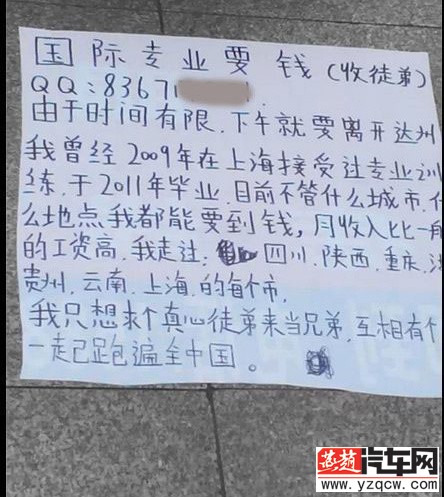 国际专业要钱(收徒弟)
QQ:83671
由于时间有限.下午就要离开达州
我曾经2009年在上海接受过专业训
练.于2011年毕业.目前不管什么城市.什
么地点.我都能要到钱,月收入比一般
的工资高.我走过: 四川.陕西.重庆.
贵州.云南.上海.的每个市.
我只想求个真心徒弟来当兄弟.互相有个
一走已跑遍全中国。
燕赵汽车网
www.yzqcw.com